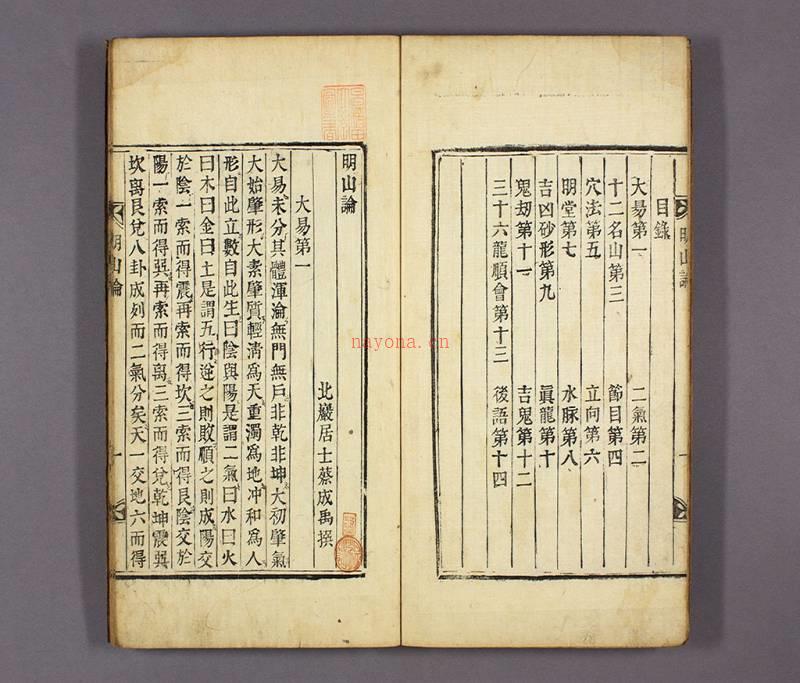 目錄
大易第一 二氣第二
十二名山第三 節目第四
穴法第五 立向第六
明堂第七 水脉第八
吉凶砂形第九 眞龍第十
鬼刼第十一 吉鬼第十二
三十六龍順會第十三 後語第十四
明山論
明山論
北巖居士蔡成禹撰
大易第一
大易未分其體渾淪無門無戶非乾非坤大初肇氣
大始肇形大素肇質輕淸爲天重濁爲地冲和爲人
形自此立數自此生曰陰與陽是謂二氣曰水曰火
曰木曰金曰土是謂五行逆之則敗順之則成陽交
於陰一索而得震再索而得坎三索而得艮陰交於
陽一索而得巽再索而得离三索而得兌乾坤震巽
坎离艮兌八卦成列而二氣分矣天一交地六而得
明山論
一
nayona.cn